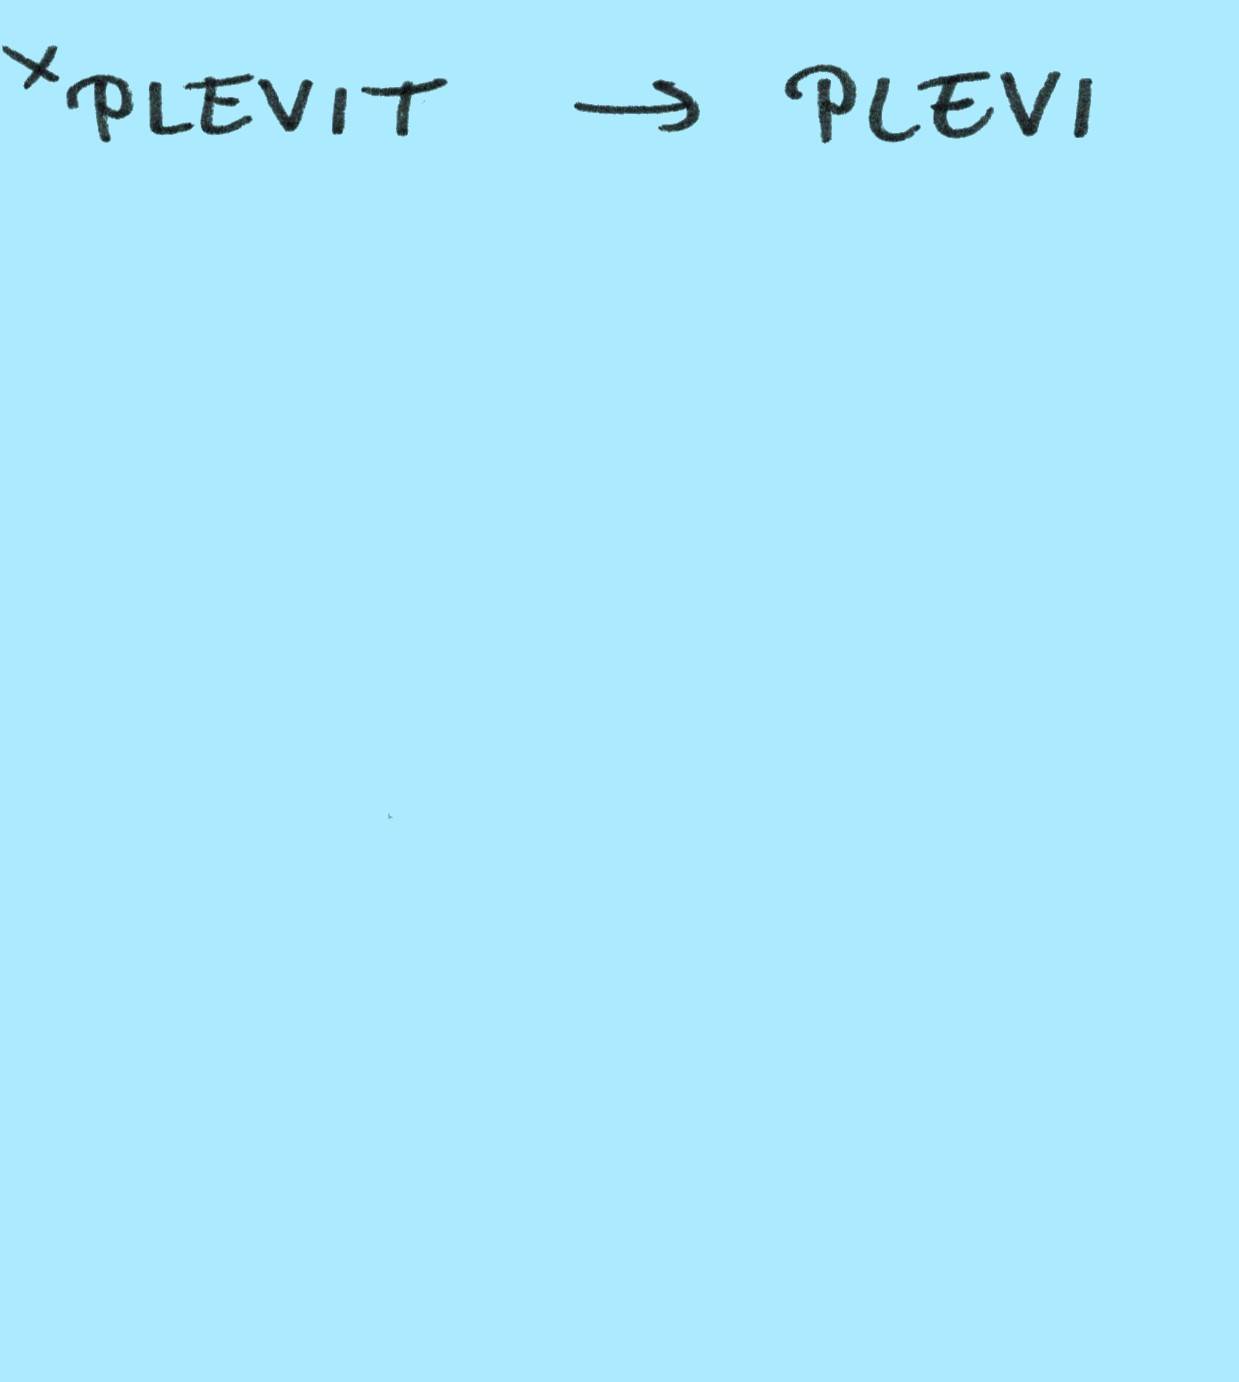 ×PLEVIT → PLEVI